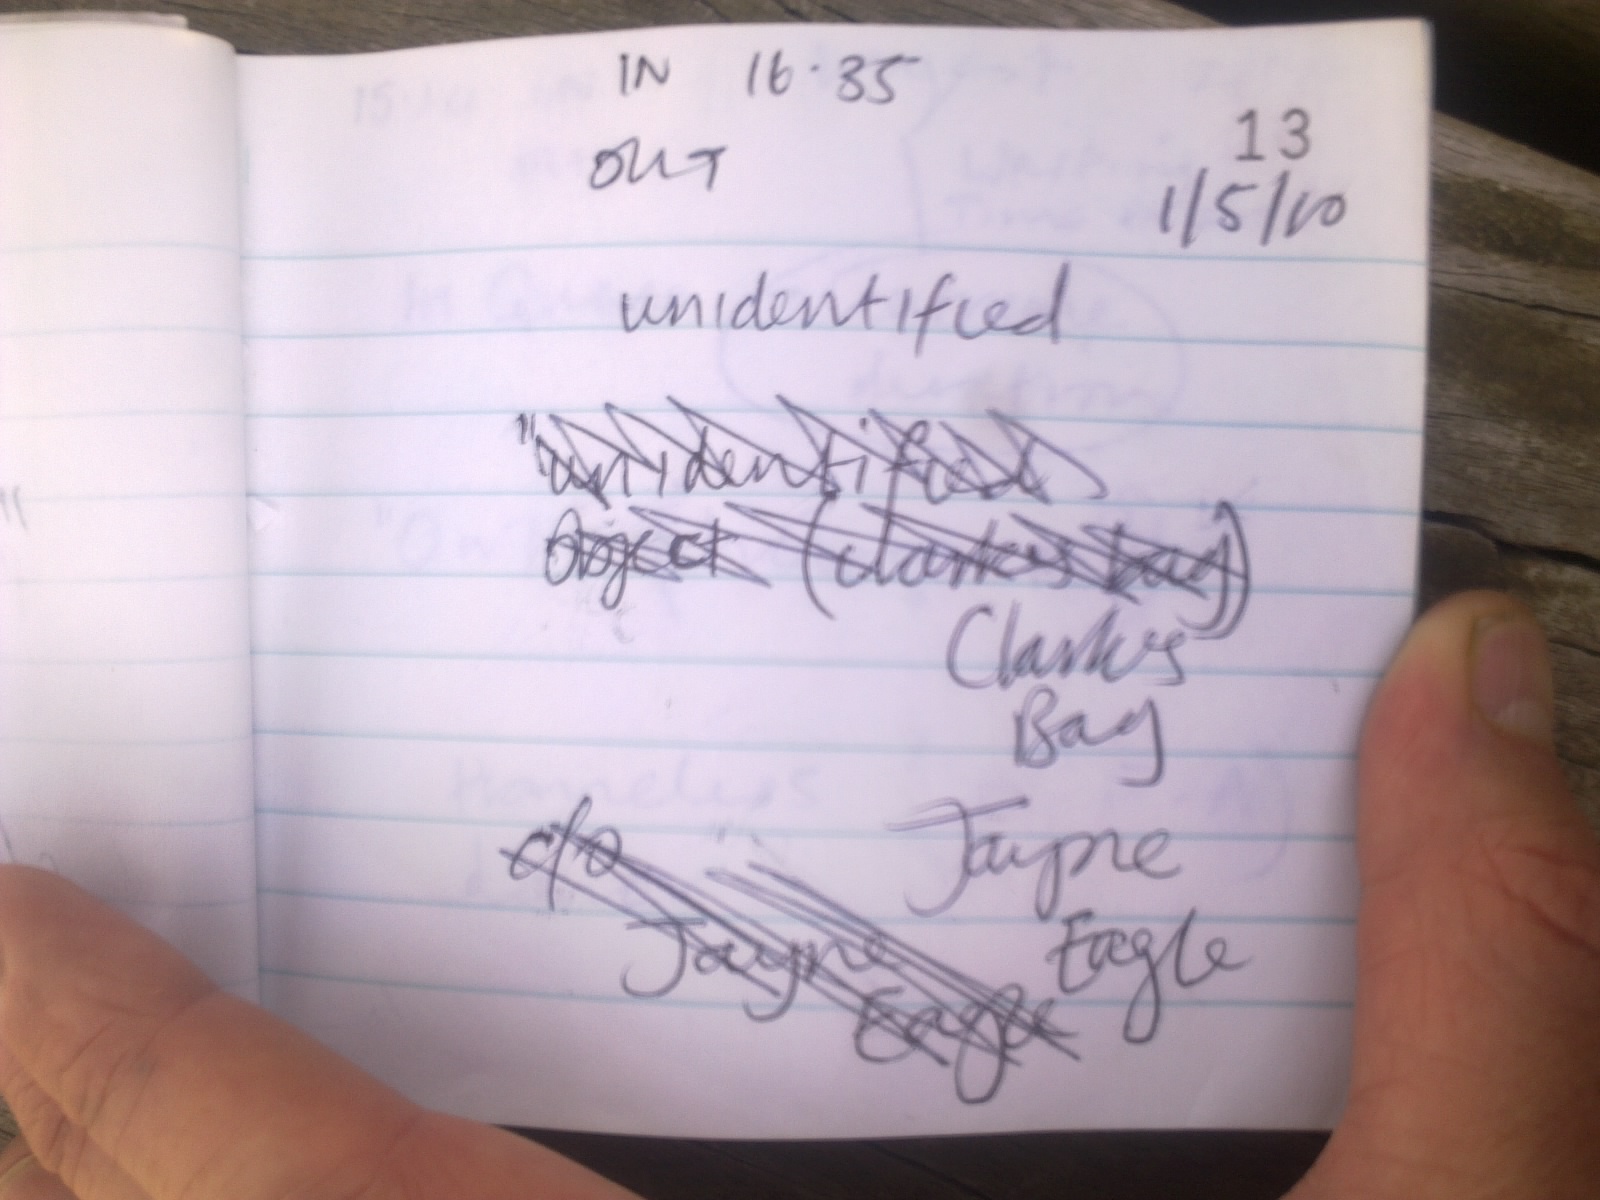 IN 16.35
OUT
13
1/5/10
unidentified
"unidentified
Object (Clarkes bag)
Clarkes
Bag
c/o
Jayne
Eagle
Jayne
Eagle